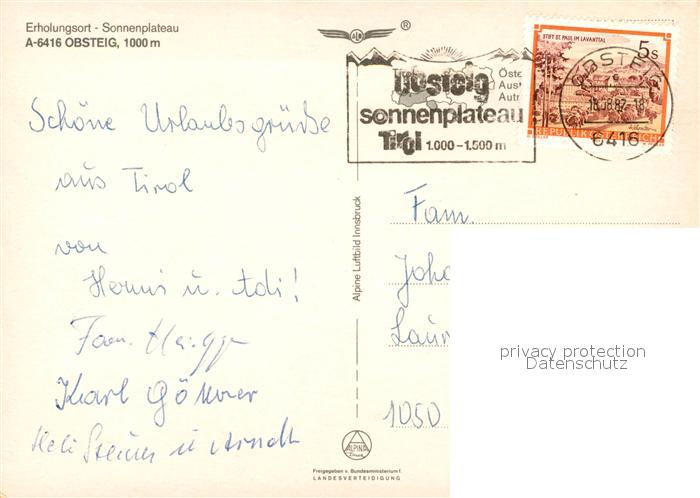 Erholungsort - Sonnenplateau
A-6416 OBSTEIG, 1000 m
ALPINA
®
STIFT ST. PAUL IM LAVANTTAL
5s
REPUBLIK ÖSTERREICH
OBSTEIG
18.08.87-18
6416
Tirol
obsteig
sonnenplateau
Tirol 1.000 - 1.500 m
Schöne Urlaubsgrüße
aus Tirol
von
u. Adi!
Fam.
Karl
Steiner u
Alpine Luftbild Innsbruck
Fam.
Joh
Laur
1050
privacy protection
Datenschutz
ALPINA
Freigegeben v. Bundesministerium f.
LANDESVERTEIDIGUNG